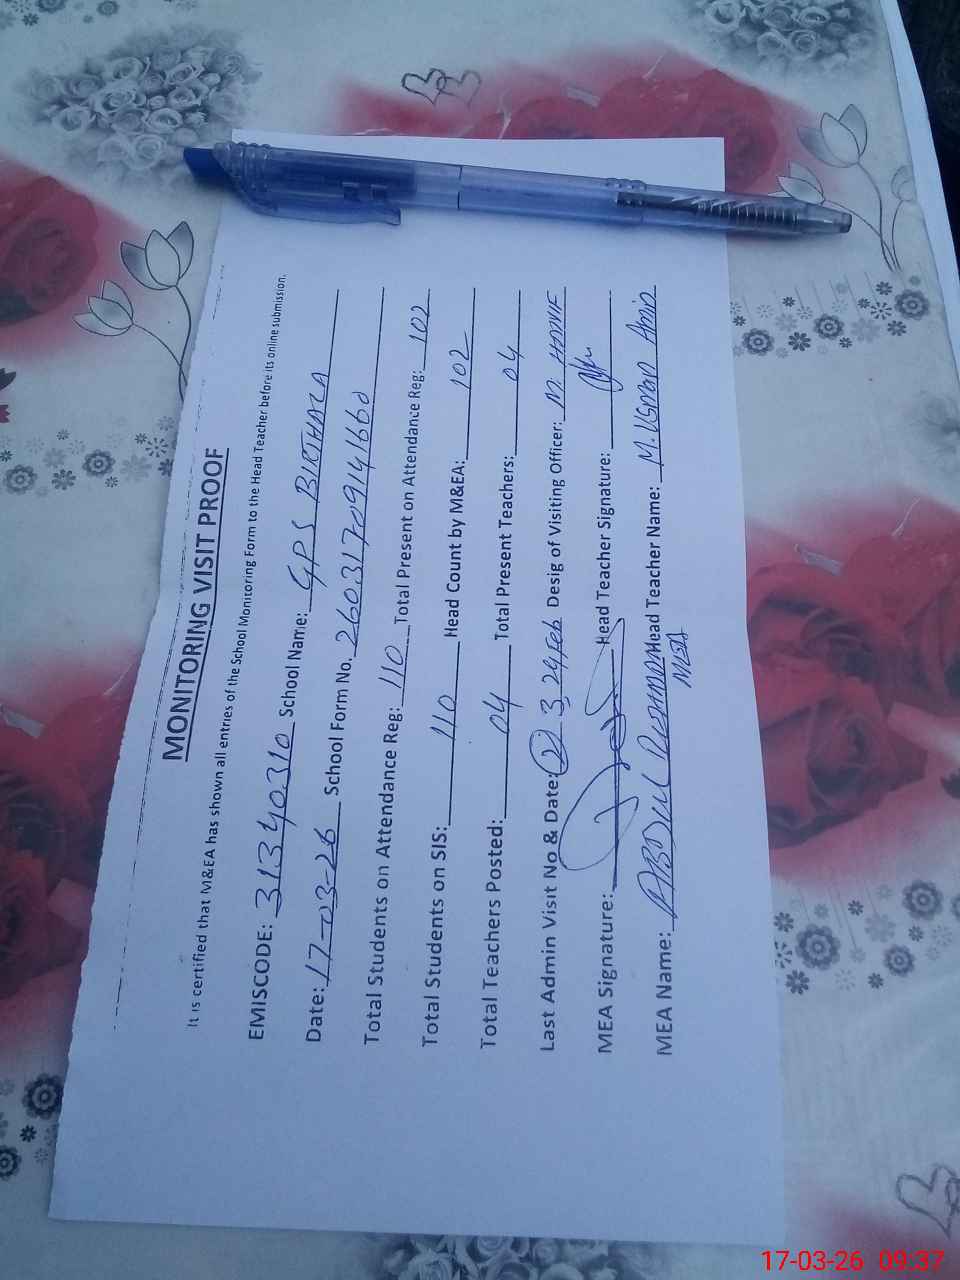 MONITORING VISIT PROOF
It is certified that M&EA has shown all entries of the School Monitoring Form to the Head Teacher before its online submission.
EMISCODE: 31340310 School Name: GPS BIRTHALA
Date: 17-03-26 School Form No. 2603170914166
Total Students on Attendance Reg: 110 Total Present on Attendance Reg: 102
Total Students on SIS: 110 Head Count by M&EA: 102
Total Teachers Posted: 04 Total Present Teachers: 04
Last Admin Visit No & Date: 3, 24 Feb Desig of Visiting Officer: M. HANIF
MEA Signature: Head Teacher Signature:
MEA Name: ABDUL REHMAN Head Teacher Name: M. USMAN Amin
17-03-26 09:37